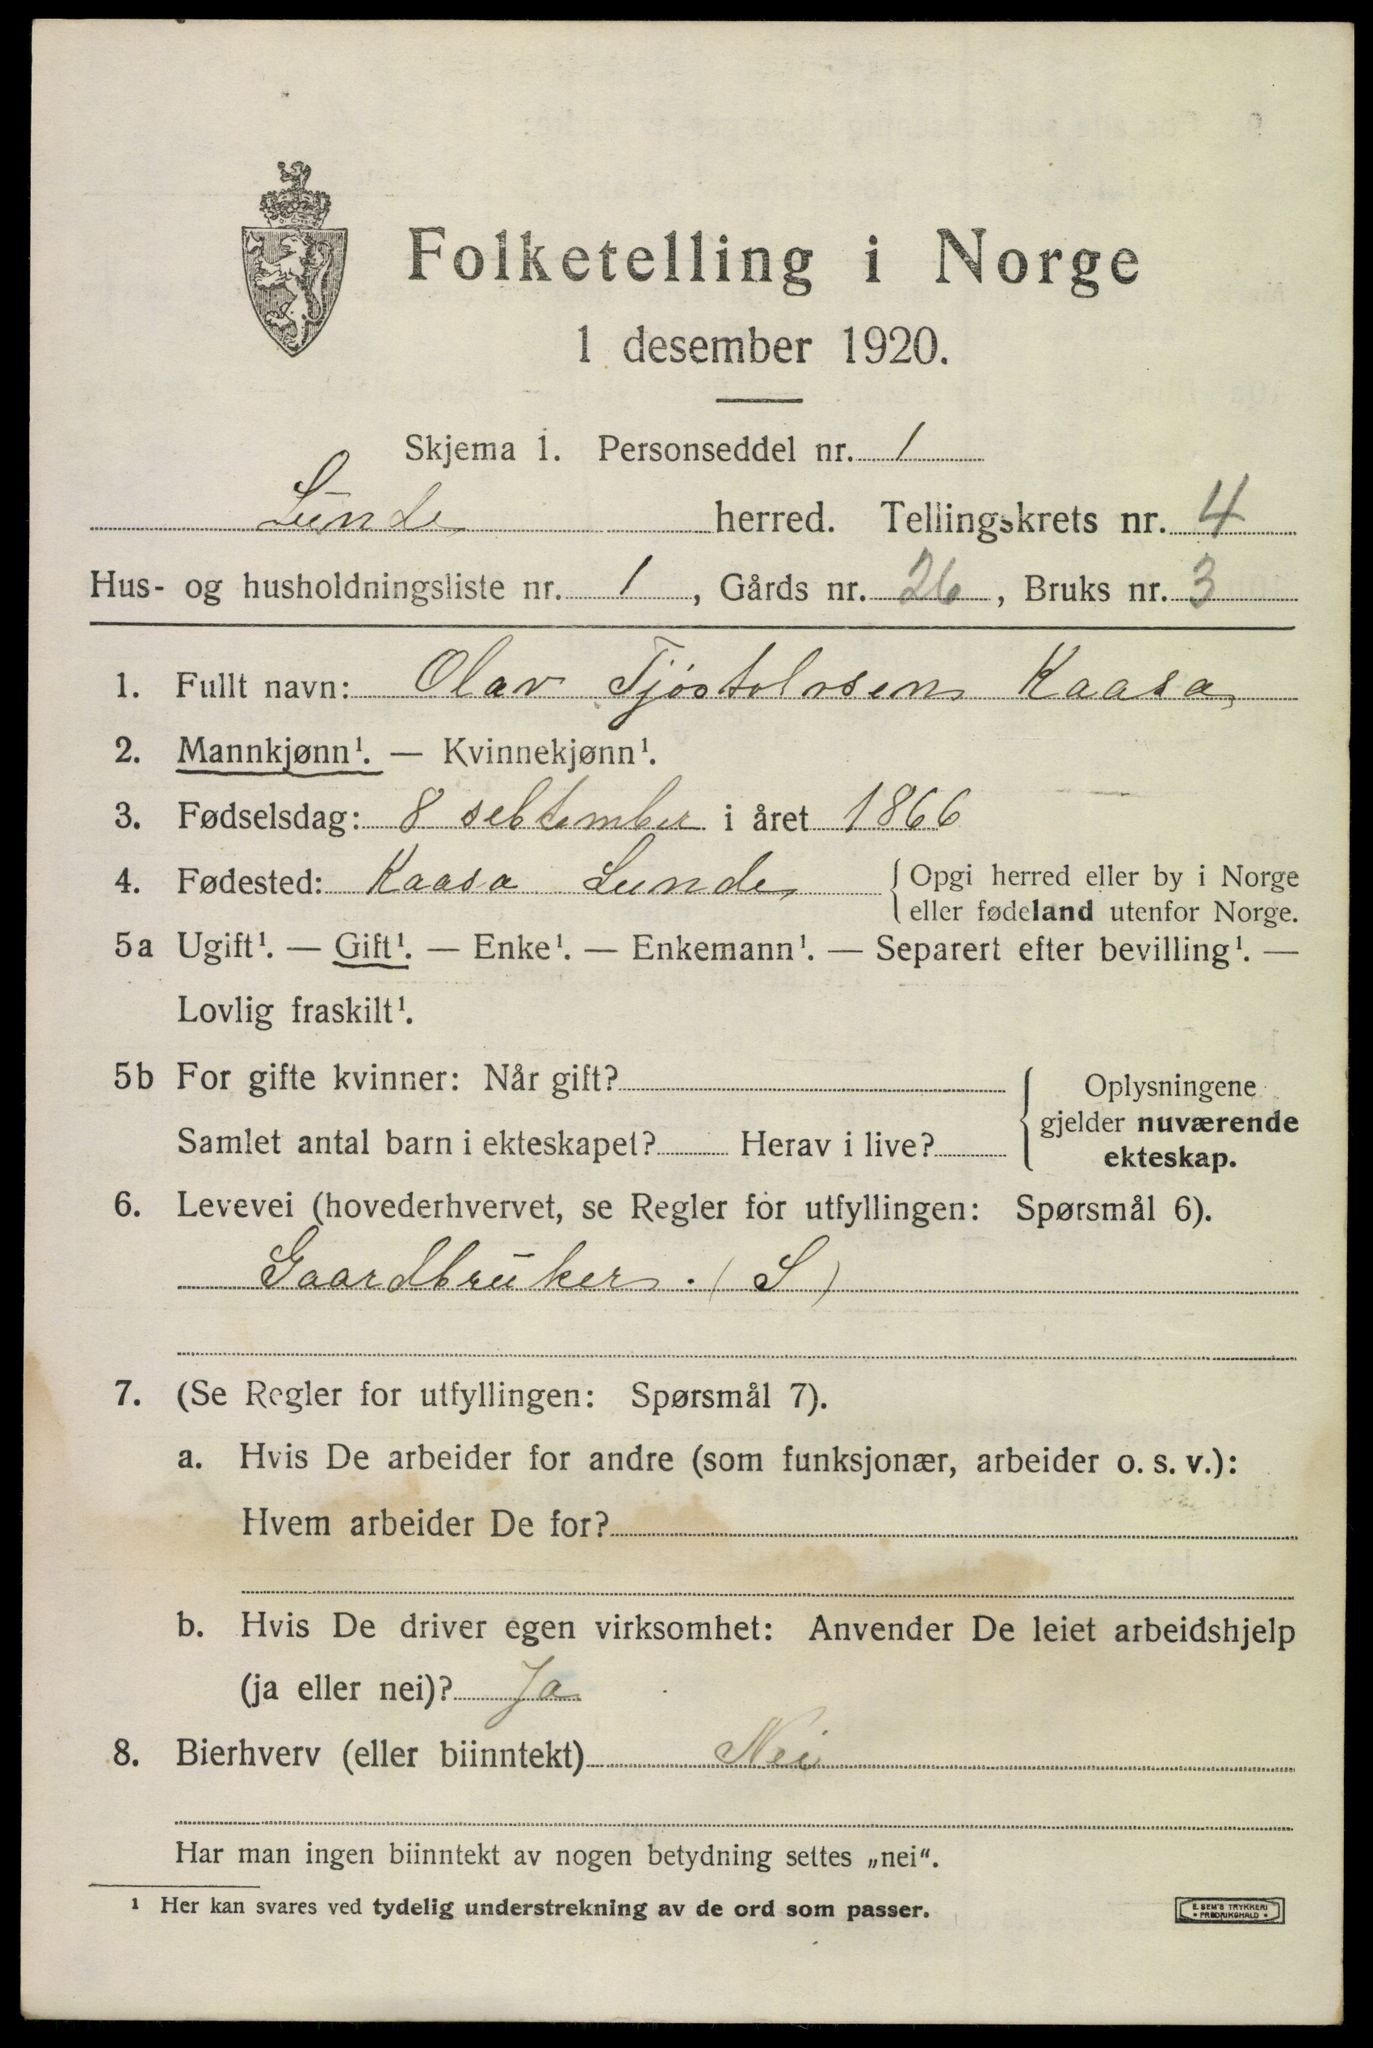 Folketelling i Norge
1 desember 1920.
Skjema 1. Personseddel nr. 1
Lunde herred. Tellingskrets nr. 4
Hus- og husholdningsliste nr. 1, Gårds nr. 26, Bruks nr. 3
1. Fullt navn: Olav Tjøstolvsen Kaasa,
2. Mannkjønn¹. — Kvinnekjønn¹.
3. Fødselsdag: 8 september i året 1866
4. Fødested: Kaasa Lunde { Opgi herred eller by i Norge
eller fødeland utenfor Norge.
5a Ugift¹. — Gift¹. — Enke¹. — Enkemann¹. — Separert efter bevilling¹. —
Lovlig fraskilt¹.
5b For gifte kvinner: Når gift? { Oplysningene
gjelder nuværende
Samlet antal barn i ekteskapet? Herav i live?
ekteskap.
6. Levevei (hovederhvervet, se Regler for utfyllingen: Spørsmål 6).
Gaardbruker. (S)
7. (Se Regler for utfyllingen: Spørsmål 7).
a. Hvis De arbeider for andre (som funksjonær, arbeider o. s. v.):
Hvem arbeider De for?
b. Hvis De driver egen virksomhet: Anvender De leiet arbeidshjelp
(ja eller nei)? Ja
8. Bierhverv (eller biinntekt) Nei
Har man ingen biinntekt av nogen betydning settes „nei“.
¹ Her kan svares ved tydelig understrekning av de ord som passer.
E. SEM'S TRYKKERI
• FREDRIKSHALD •